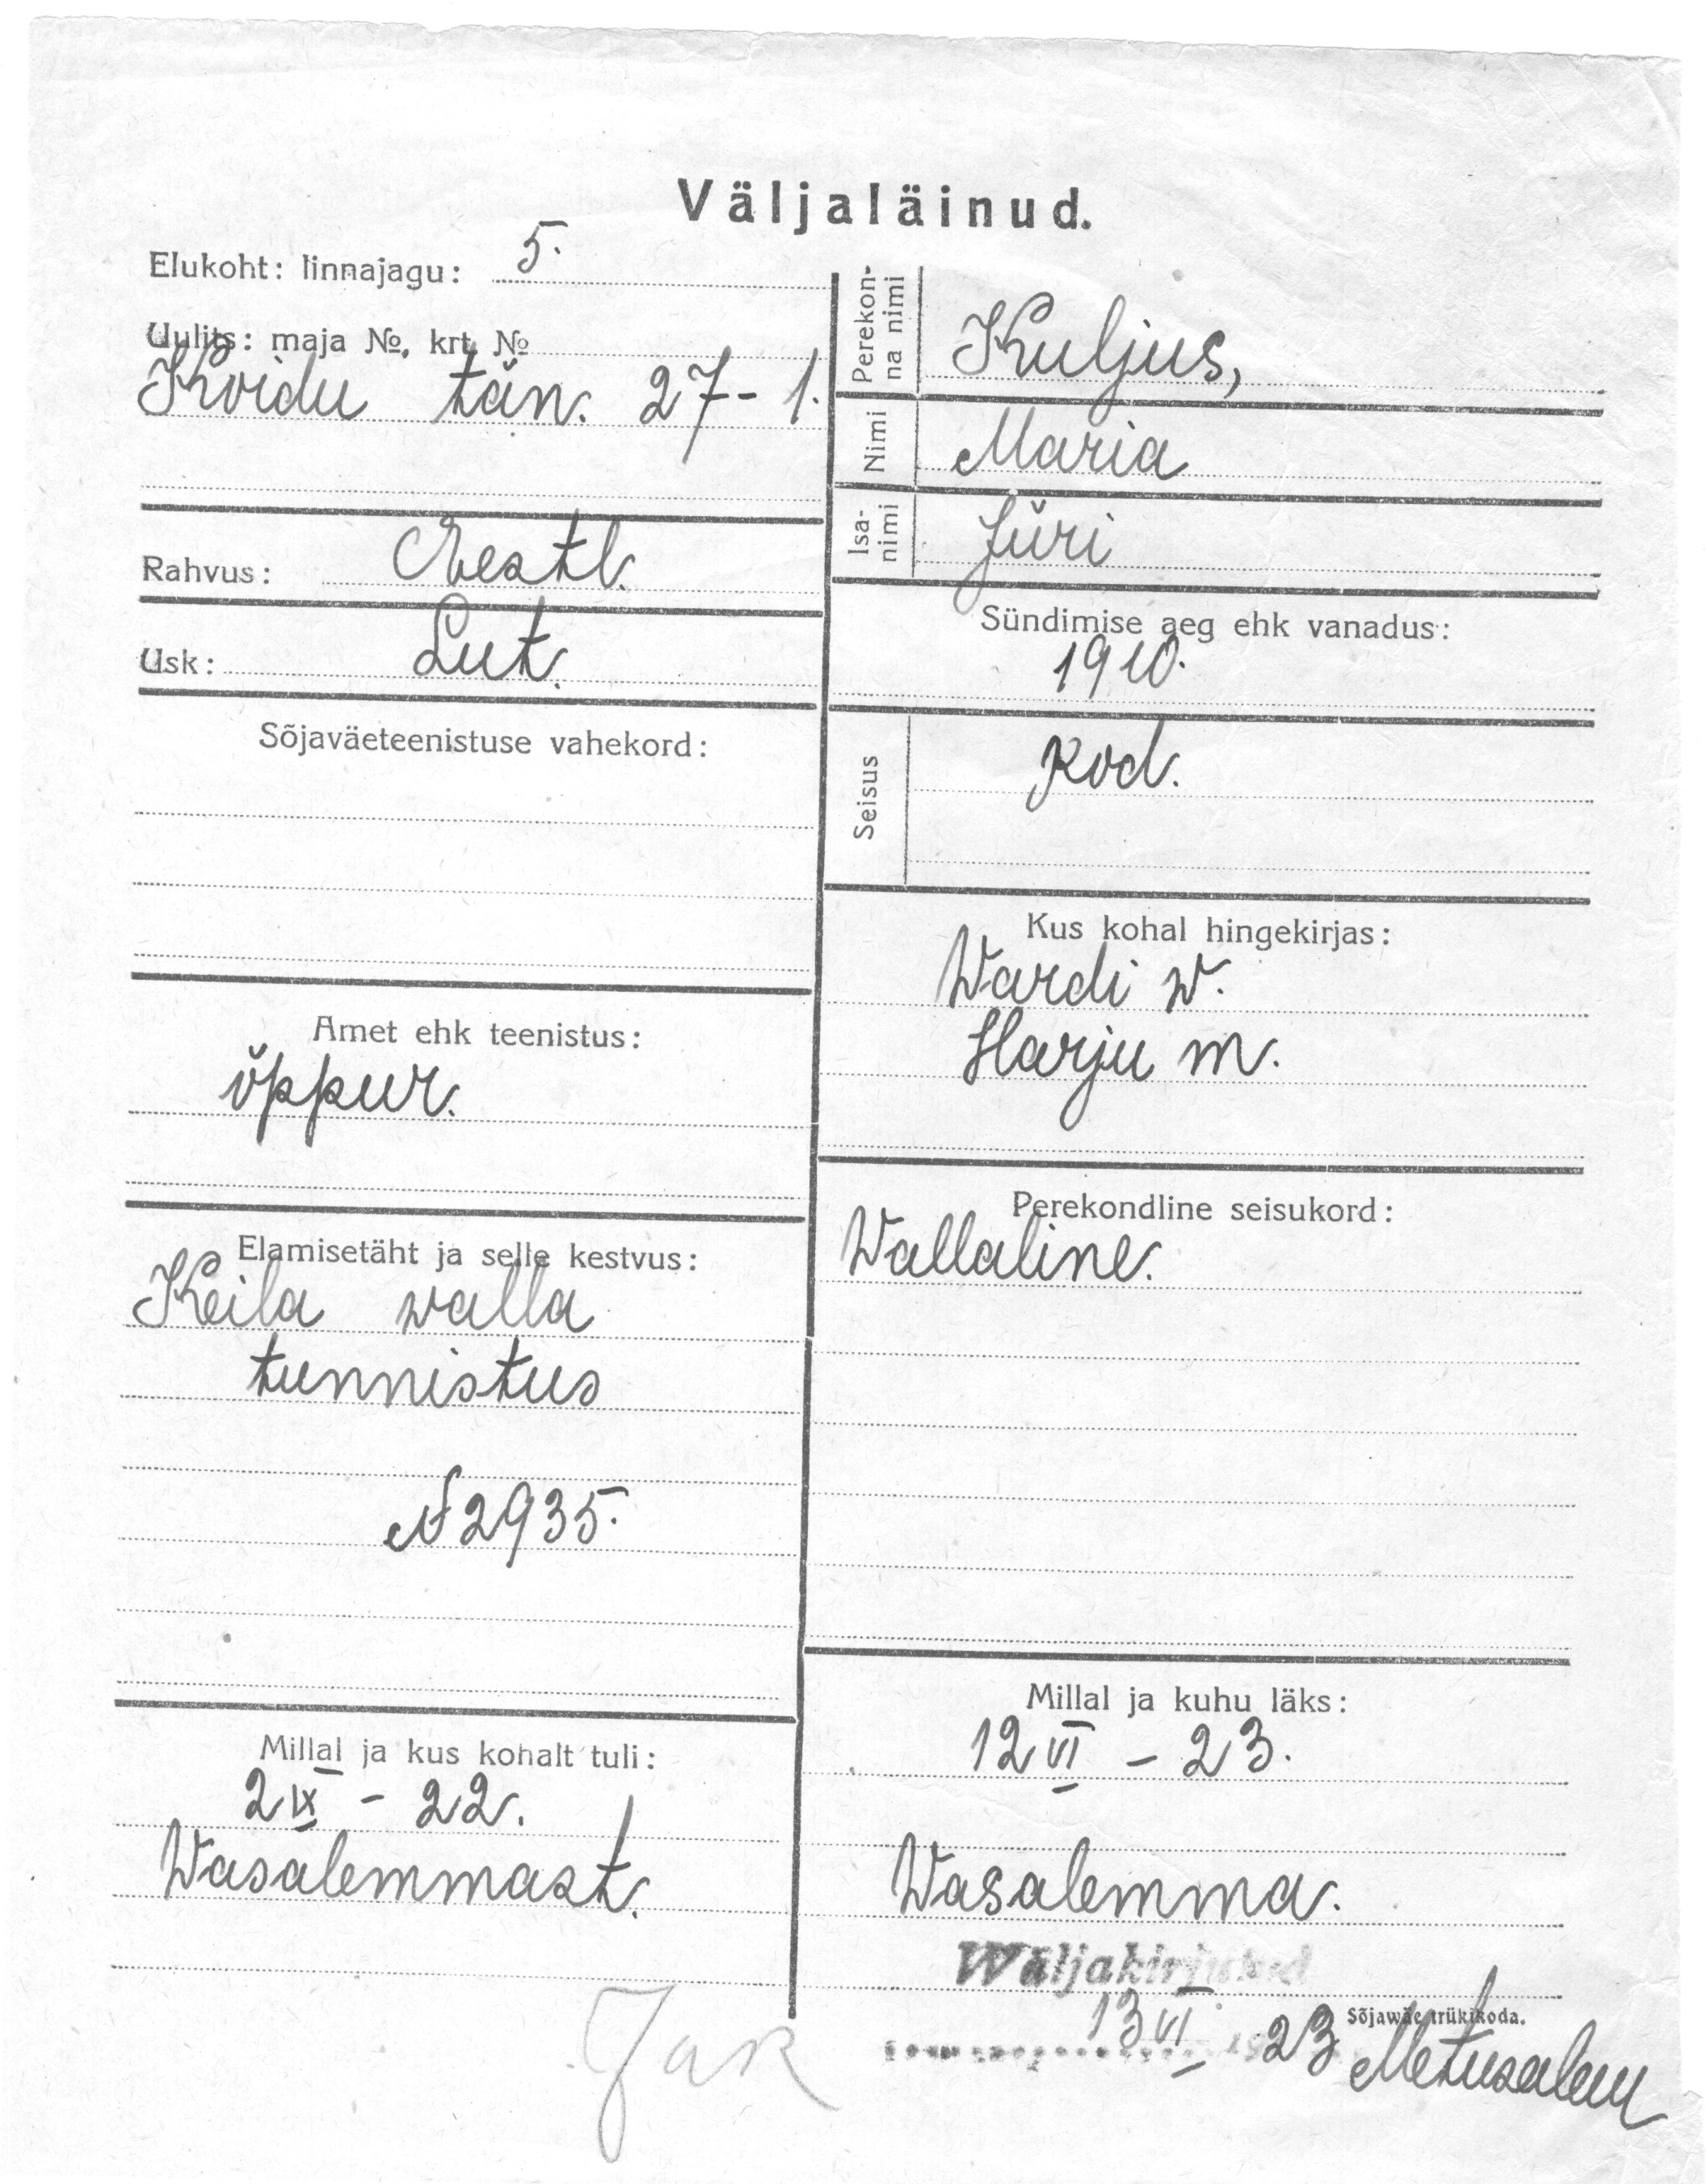 Väljaläinud.
Elukoht: linnajagu: 5.
Uulits: maja №, krt. №
Koidu tän. 27-1.
Rahvus: Eestl.
Usk: Lut.
Sõjaväeteenistuse vahekord:
Amet ehk teenistus:
õppur.
Elamisetäht ja selle kestvus:
Keila walla
tunnistus
№ 2935.
Millal ja kus kohalt tuli:
2 IX - 22.
Wasalemmast.
Perekon-
na nimi
Kuljus,
Nimi
Maria
Isa-
nimi
Jüri
Sündimise aeg ehk vanadus:
1910.
Seisus
Kod.
Kus kohal hingekirjas:
Wardi w.
Harju m.
Perekondline seisukord:
Wallaline.
Millal ja kuhu läks:
12 VI - 23.
Wasalemma.
Wäljakirjutud
13 VI 23
Sõjawäe trükikoda.
Metusalem
Jak